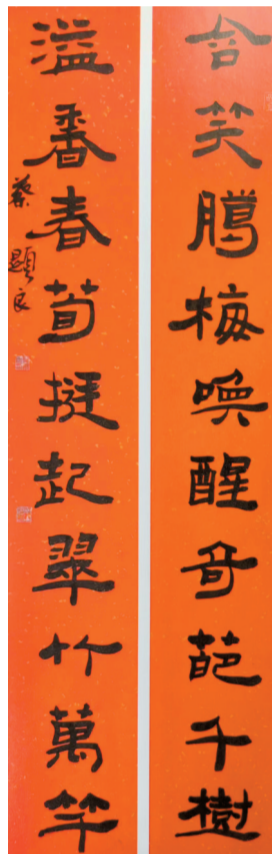 含笑臈梅喚醒奇葩千樹
溢香春荀挺起翠竹萬竿
蔡顯良